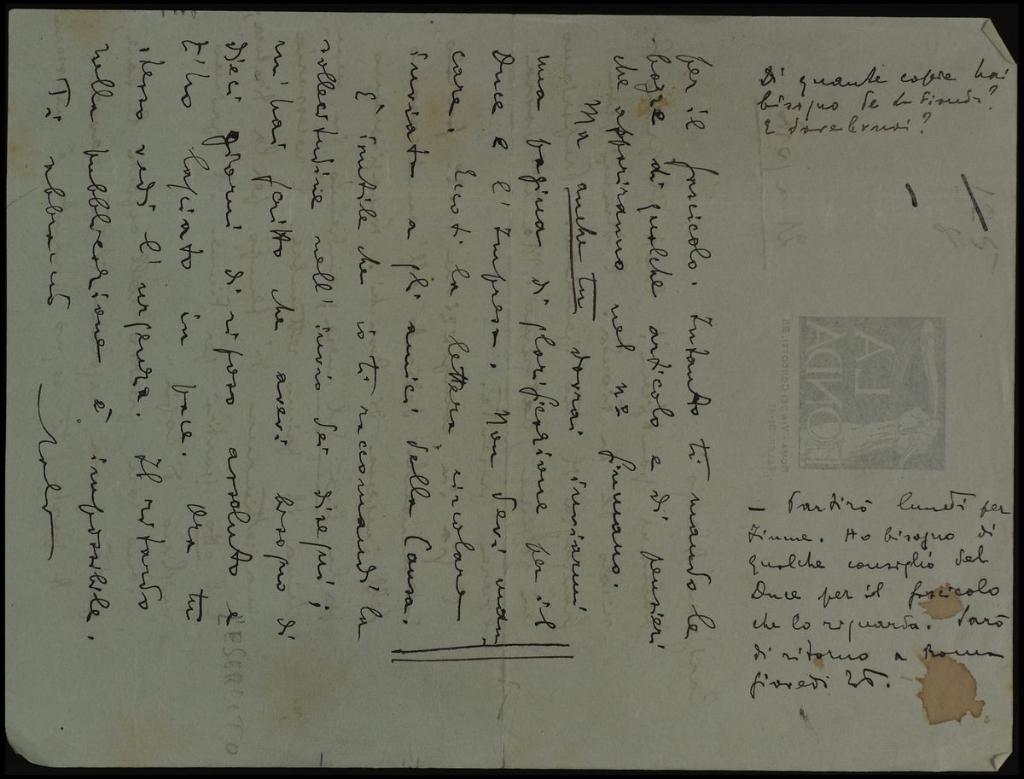 per il fascicolo. Intanto ti mando le
bozze di qualche articolo e di pensieri
che appariranno nel n° fiumano.
Ma anche tu dovrai inviarmi
una pagina di glorificazione per il
Duce e l'Impresa. Non devi
care. Eccoti la lettera circolare
inviata a gli amici della Causa.
È inutile che io ti raccomandi la
sollecitudine nell'invio dei disegni;
mi hai scritto che avevi bisogno di
dieci giorni di riposo assoluto e
t'ho lasciato in pace. Ora tu
stesso vedi l'urgenza. Il ritardo
nella pubblicazione è impossibile.
Ti abbraccio
Di quante copie hai
bisogno de La Fionda?
e dove
LA
FIONDA
- Partirò lunedì per
Fiume. Ho bisogno di
qualche consiglio del
Duce per il fascicolo
che lo riguarda. Sarò
di ritorno a Roma
giovedì